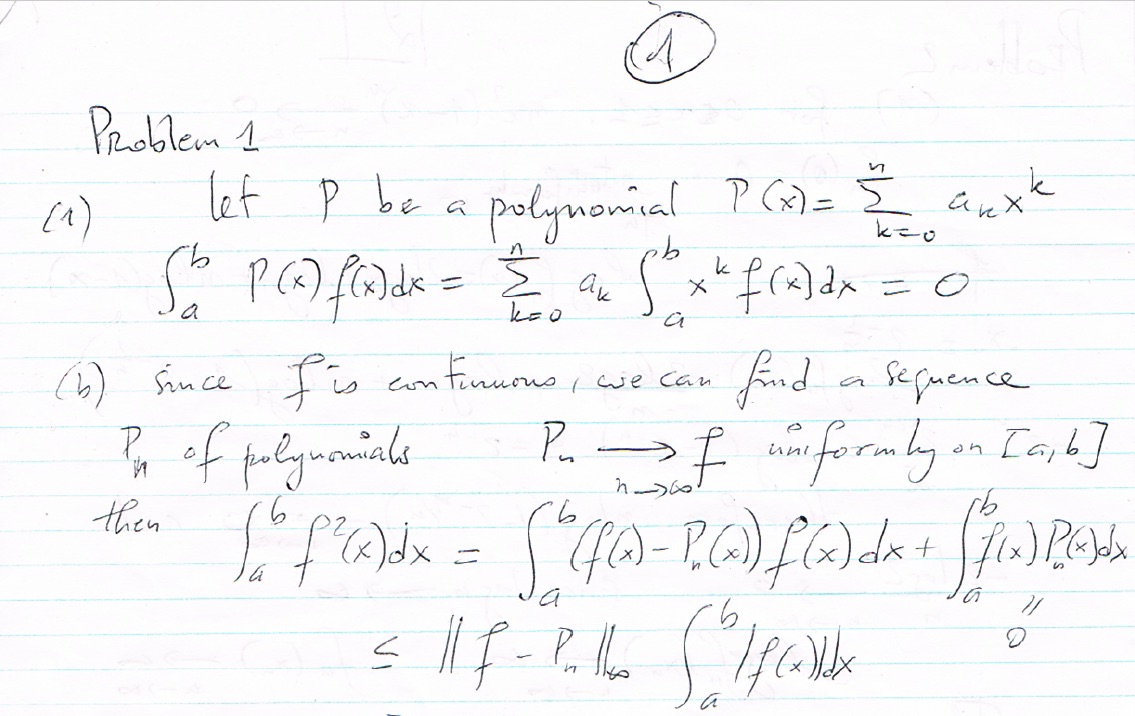 1
Problem 1
(1) let P be a polynomial P(x) = ∑_{k=0}^{n} a_k x^k
∫_a^b P(x) f(x) dx = ∑_{k=0}^{n} a_k ∫_a^b x^k f(x) dx = 0
(b) since f is continuous, we can find a sequence
P_n of polynomials P_n ⟶_{n→∞} f uniformly on [a, b]
then ∫_a^b f²(x) dx = ∫_a^b (f(x) − P_n(x)) f(x) dx + ∫_a^b f(x) P_n(x) dx
≤ ‖f − P_n‖_∞ ∫_a^b |f(x)| dx
" 0